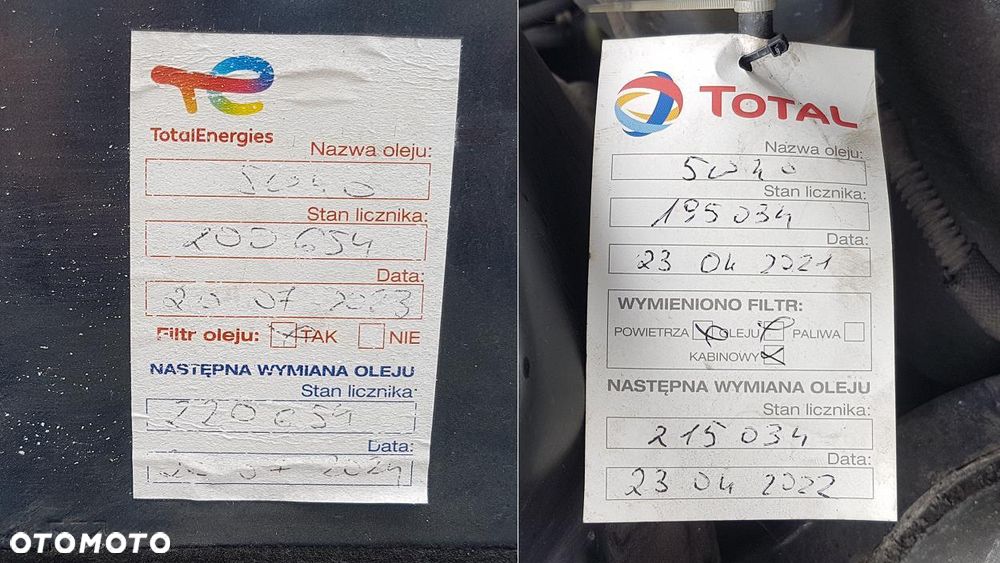 TotalEnergies
Nazwa oleju:
5040
Stan licznika:
200 654
Data:
20 07 2023
Filtr oleju: TAK NIE
NASTĘPNA WYMIANA OLEJU
Stan licznika:
220 654
Data:
20 07 2024
TOTAL
Nazwa oleju:
5040
Stan licznika:
195 034
Data:
23 04 2021
WYMIENIONO FILTR:
POWIETRZA OLEJU PALIWA
KABINOWY
NASTĘPNA WYMIANA OLEJU
Stan licznika:
215 034
Data:
23 04 2022
OTOMOTO